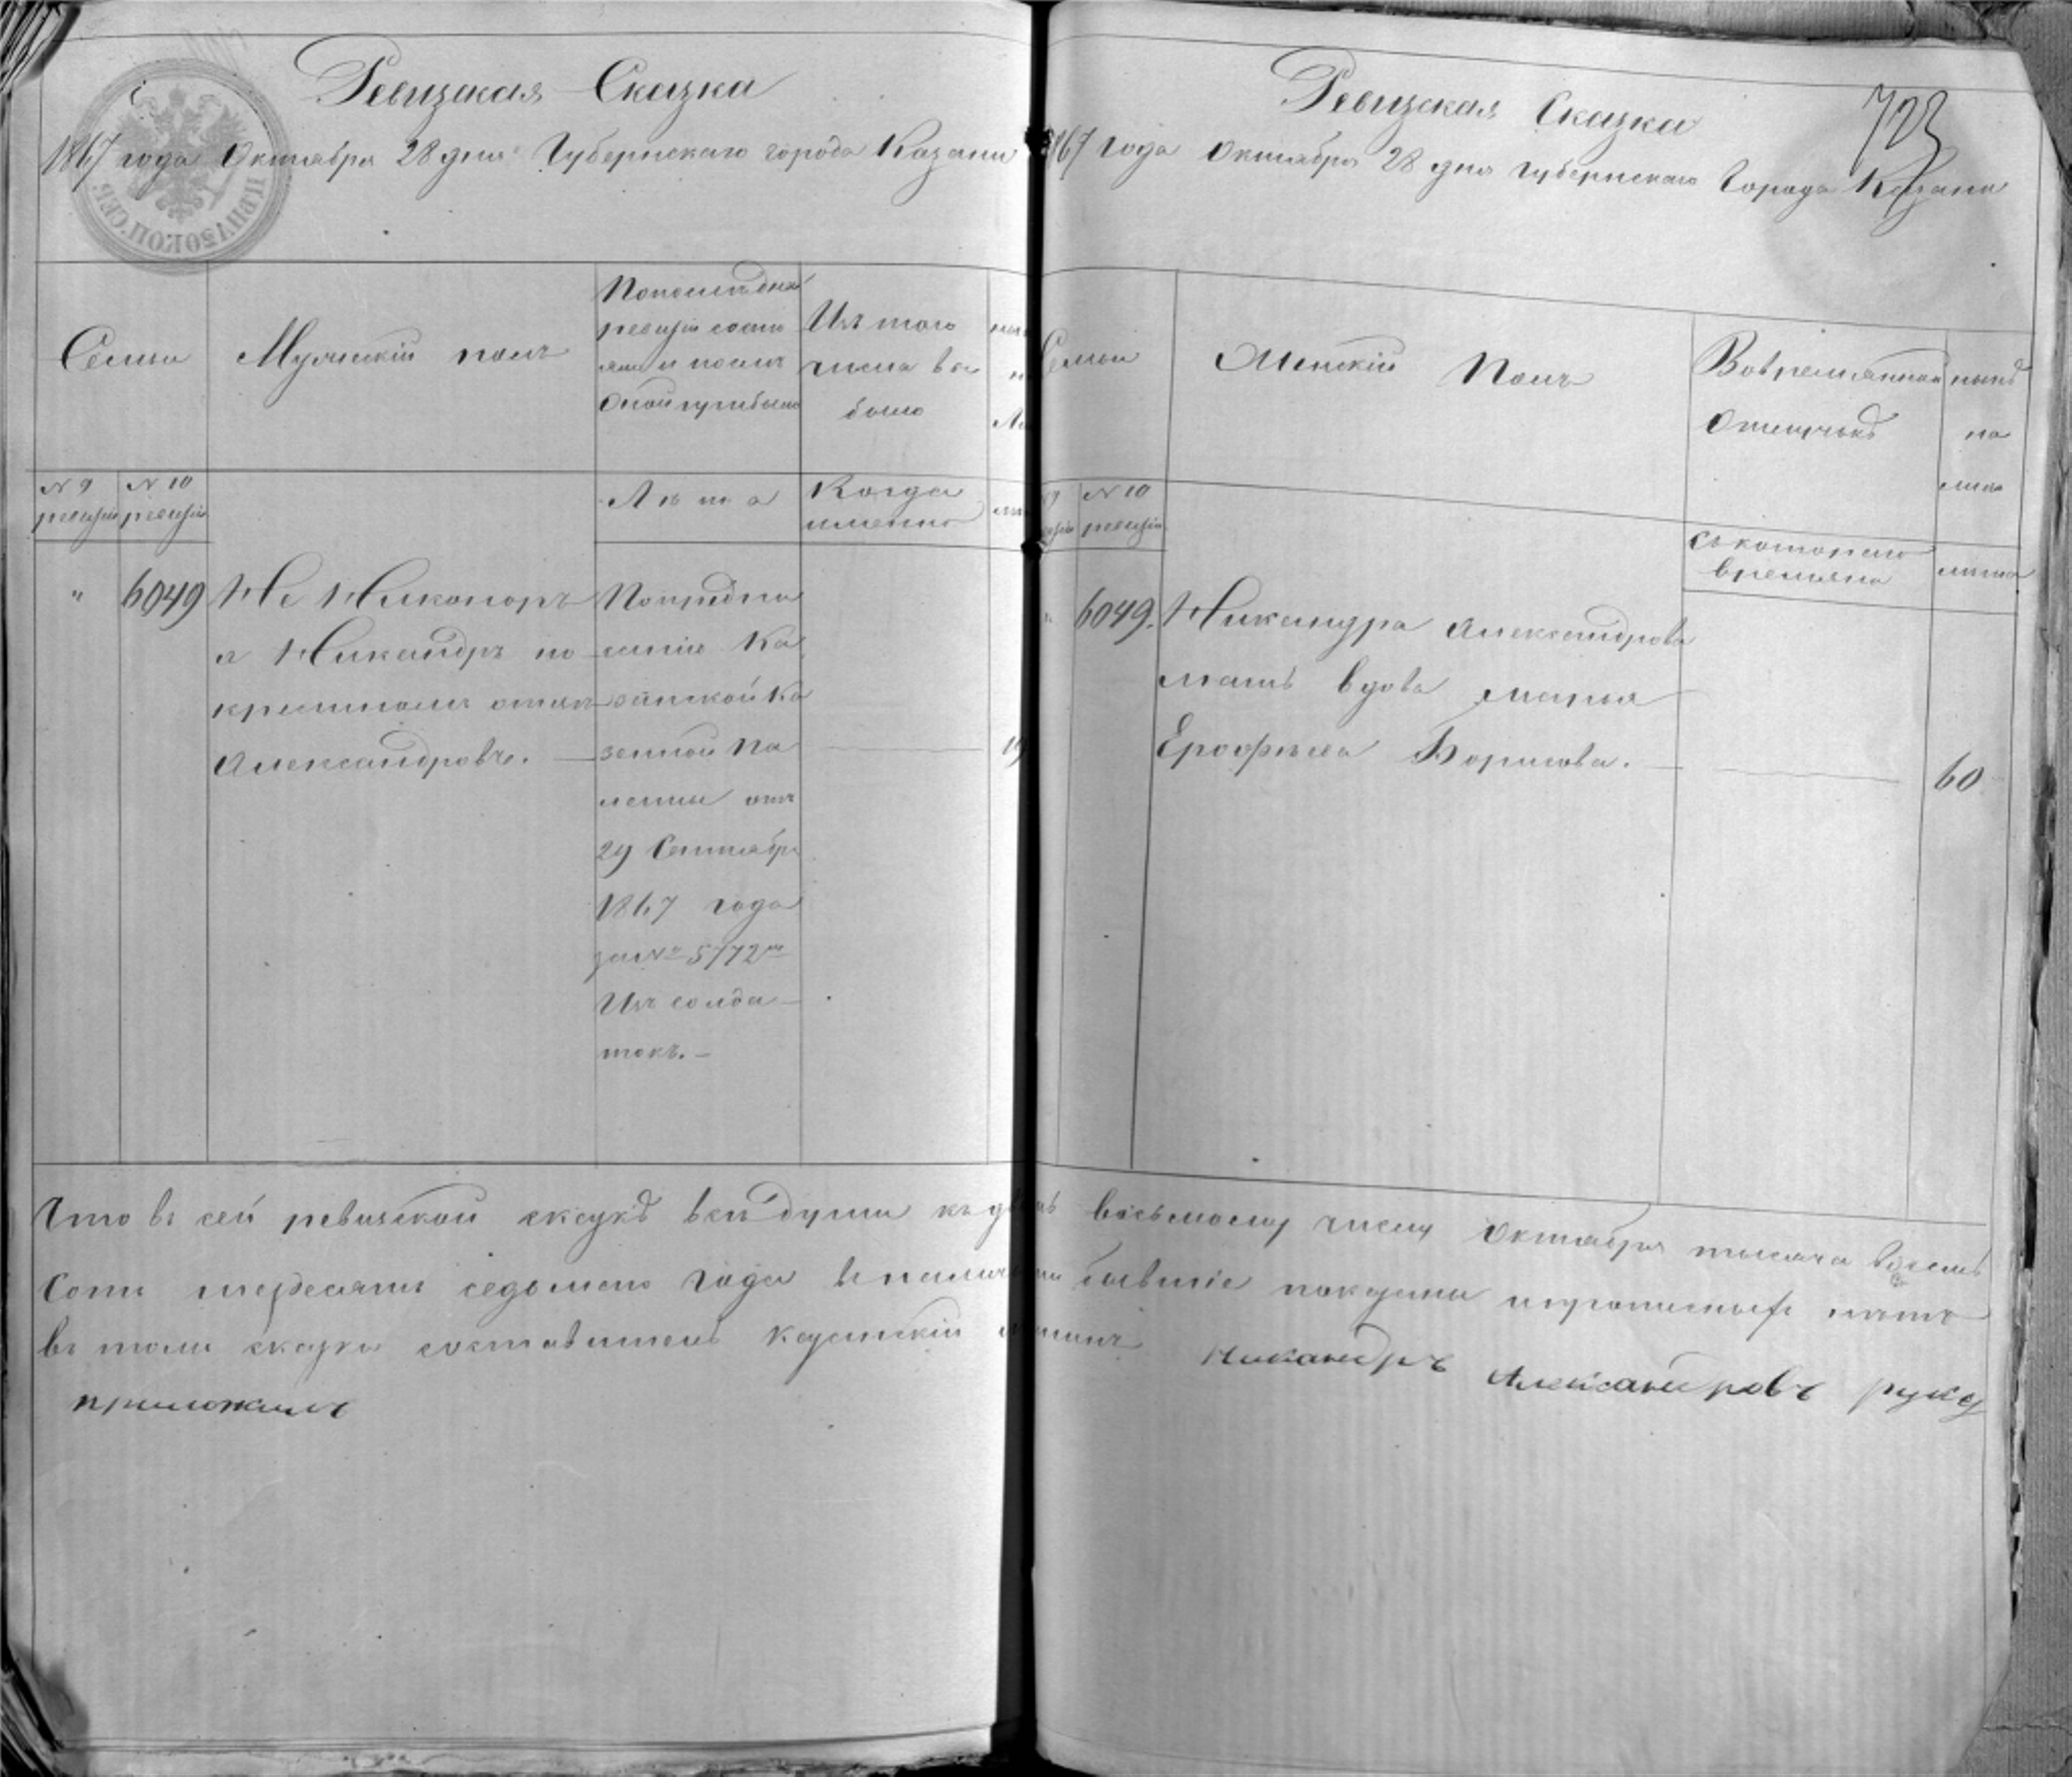 Ревизская Сказка
1867 года Октября 28 дня Губернскаго города Казани
Семьи
Мужескій полъ
По последней
ревизіи состо
яло и после
оной прибыло
Изъ того
числа вы
было
№ 9
ревизіи
№ 10
ревизіи
Лѣта
Когда
именно
"
6049
Не Никаноръ
а Никандръ по
крестномъ отцѣ
Александровъ.
По предпи
санію Ка
занской Ка
зенной Па
латы отъ
29 Сентября
1867 года
за № 5772
Изъ солда
токъ.
19
Ревизская Сказка
723
1867 года Октября 28 дня Губернскаго Города Казани
Семьи
Женскій Полъ
Во временной
Отлучкѣ
нынѣ
на
лицо
№ 10
ревизіи
Съ котораго
времяна
лѣта
6049.
Никандра Александрова
мать вдова Марья
Ерофѣева Борисова.
60
Что въ сей ревизской сказкѣ всѣ души къ двадцать восьмому числу Октября тысяча восемь
сотъ шестьдесятъ седьмого года въ наличности бывшіе показаны и прописныхъ нѣтъ
въ томъ сказки составитель Казанскій мѣщанинъ Никандръ Александровъ руку
приложилъ